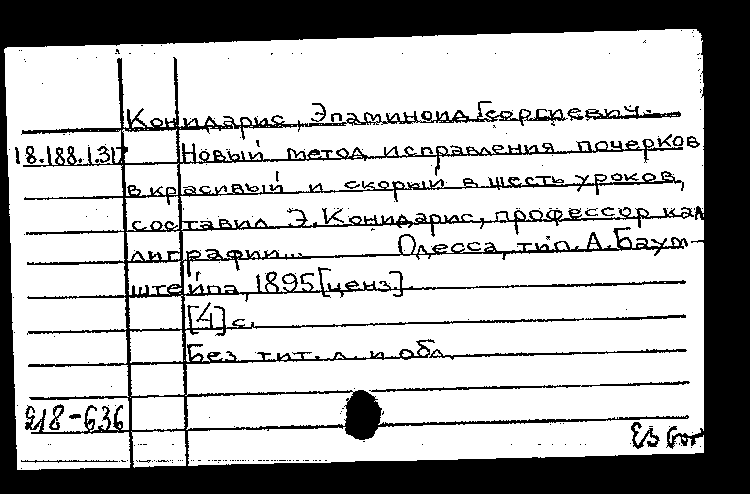 Конидарис, Эпаминонд Георгиевич.
18.188.1.317 Новый метод исправления почерков
в красивый и скорый в шесть уроков,
составил Э. Конидарис, профессор кал
лиграфии... Одесса, тип. А. Баум-
штейна, 1895 [ценз].
[4] с.
Без тит. л. и обл.
218-636